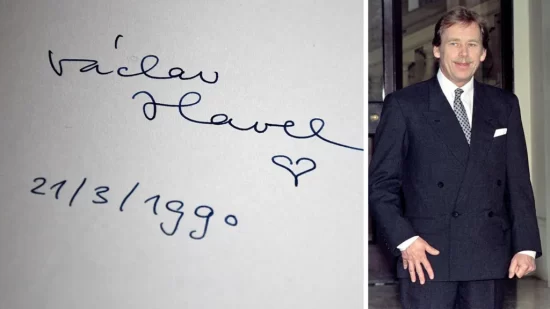 Václav
Havel
21/3/1990